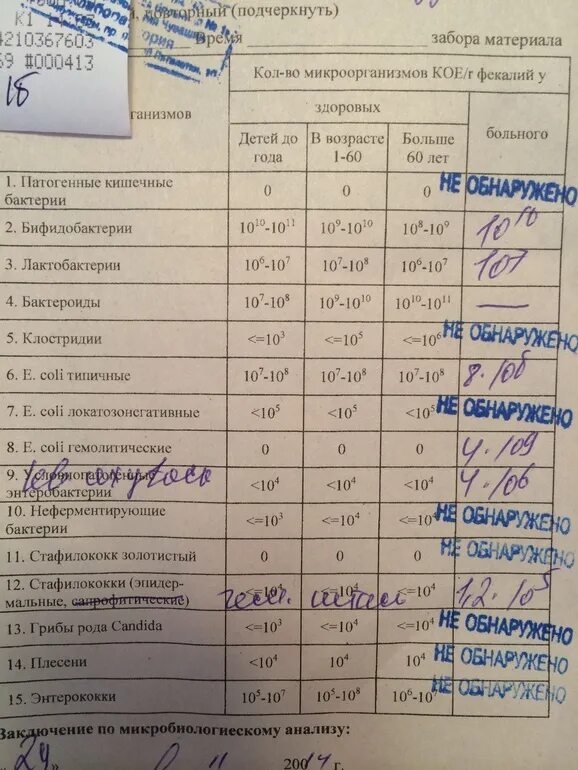 К1 1
4210367603
69 #000413
18
, повторный (подчеркнуть)
Время забора материала
Кол-во микроорганизмов КОЕ/г фекалий у
здоровых
больного
Детей до года
В возрасте 1-60
Больше 60 лет
1. Патогенные кишечные бактерии 0 0 0 НЕ ОБНАРУЖЕНО
2. Бифидобактерии 10¹⁰-10¹¹ 10⁹-10¹⁰ 10⁸-10⁹ 10¹⁰
3. Лактобактерии 10⁶-10⁷ 10⁷-10⁸ 10⁶-10⁷ 10⁷
4. Бактероиды 10⁷-10⁸ 10⁹-10¹⁰ 10¹⁰-10¹¹ —
5. Клостридии <=10³ <=10⁵ <=10⁶ НЕ ОБНАРУЖЕНО
6. E. coli типичные 10⁷-10⁸ 10⁷-10⁸ 10⁷-10⁸
7. E. coli локатозонегативные <10⁵ <10⁵ <10⁵ НЕ ОБНАРУЖЕНО
8. E. coli гемолитические 0 0 0 4·10⁹
9. Условнопатогенные энтеробактерии <10⁴ <10⁴ <10⁴ 4·10⁶
10. Неферментирующие бактерии <=10³ <=10⁴ <=10⁴ НЕ ОБНАРУЖЕНО
11. Стафилококк золотистый 0 0 0 НЕ ОБНАРУЖЕНО
12. Стафилококки (эпидермальные, сапрофитические) <=10⁴ <=10⁴ <=10⁴ 1,2·10⁵
гем. штам
13. Грибы рода Candida <=10³ <=10⁴ <=10⁴ НЕ ОБНАРУЖЕНО
14. Плесени <10⁴ 10⁴ 10⁴ НЕ ОБНАРУЖЕНО
15. Энтерококки 10⁵-10⁷ 10⁵-10⁸ НЕ ОБНАРУЖЕНО
Заключение по микробиологиескому анализу:
" 24 " 2014 г.